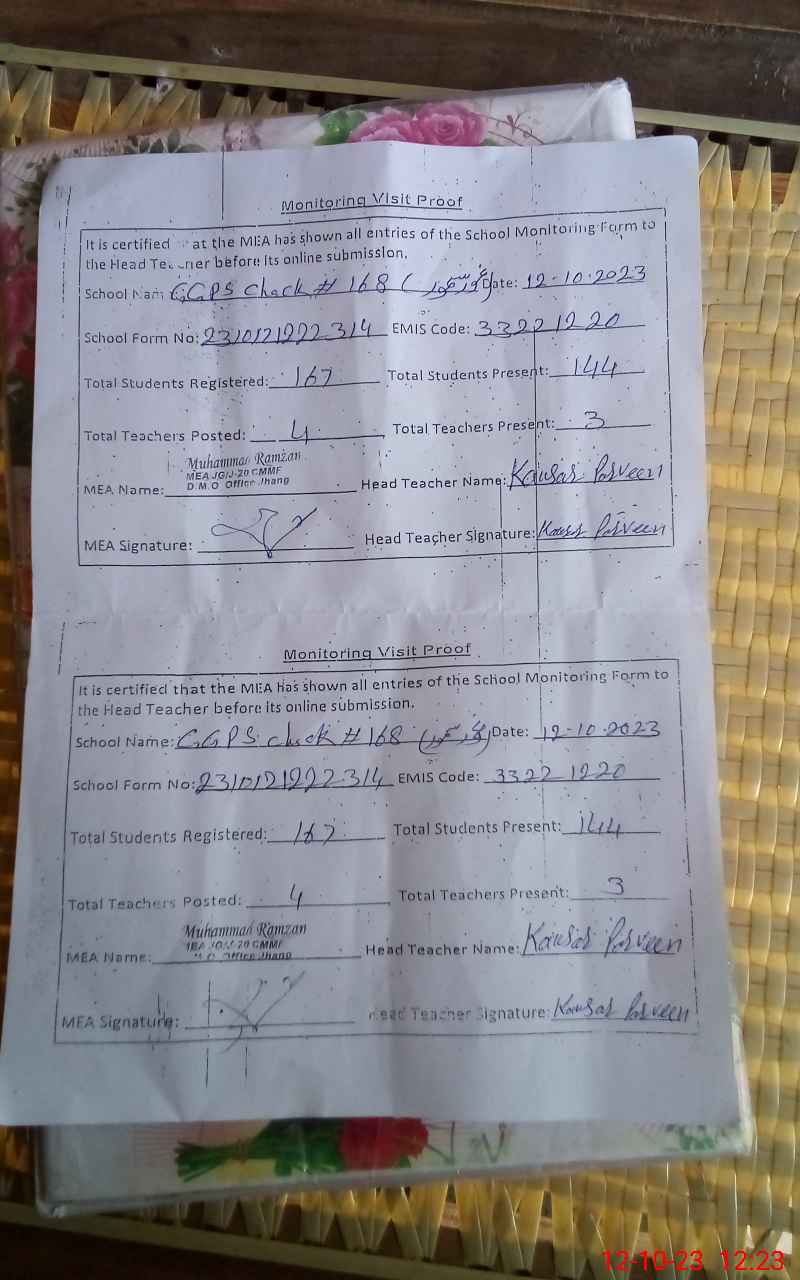 Monitoring Visit Proof
It is certified at the MEA has shown all entries of the School Monitoring Form to
the Head before its online submission.
School Nam GGPS Chack # 168 ( Date: 12-10-2023
School Form No: EMIS Code: 33221220
Total Students Registered: 167 Total Students Present: 144
Total Teachers Posted: 4 Total Teachers Present: 3
Muhammad Ramzan
MEA JG/J-20 CMMF
D.M.O Office Jhang
MEA Name: Head Teacher Name: Kausar Parveen
MEA Signature: Head Teacher Signature: Kausar Parveen
Monitoring Visit Proof
It is certified that the MEA has shown all entries of the School Monitoring Form to
the Head Teacher before its online submission.
School Name: GGPS chack # 168 ( Date: 12-10-2023
School Form No: EMIS Code: 33221220
Total Students Registered: 167 Total Students Present: 144
Total Teachers Posted: 4 Total Teachers Present: 3
Muhammad Ramzan
Office Jhang
MEA Name: Head Teacher Name: Kausar Parveen
MEA Signature: Head Teacher Signature: Kausar Parveen
12-10-23 12:23